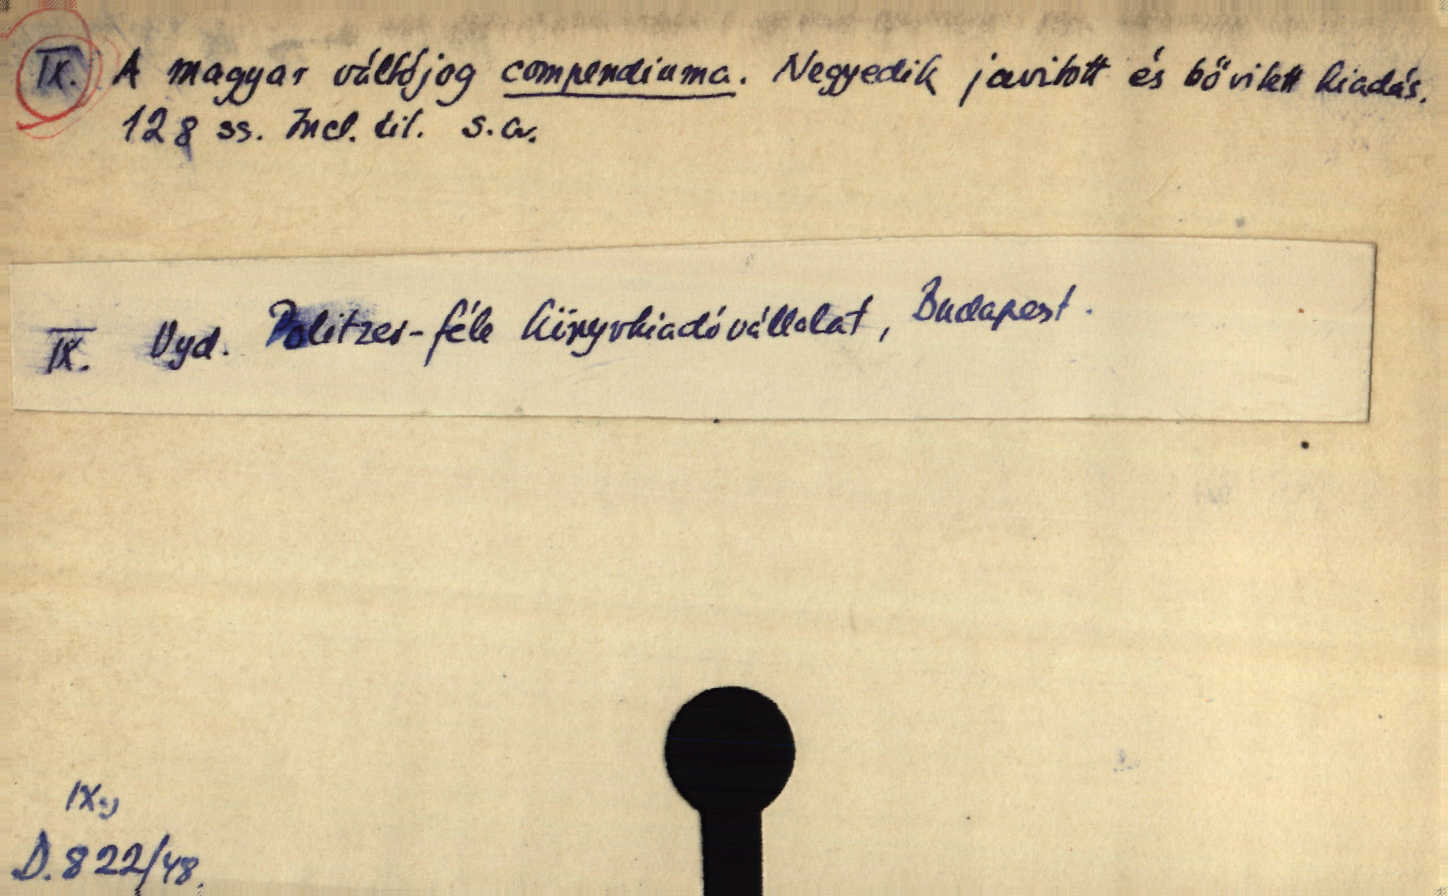 IX. A magyar váltójog compendiuma. Negyedik javitott és bövitett kiadás.
128 ss. Incl. tit. s.a.
IX. Vyd. Politzer-féle könyvkiadóvállalat, Budapest.
IX.)
D.822/48.